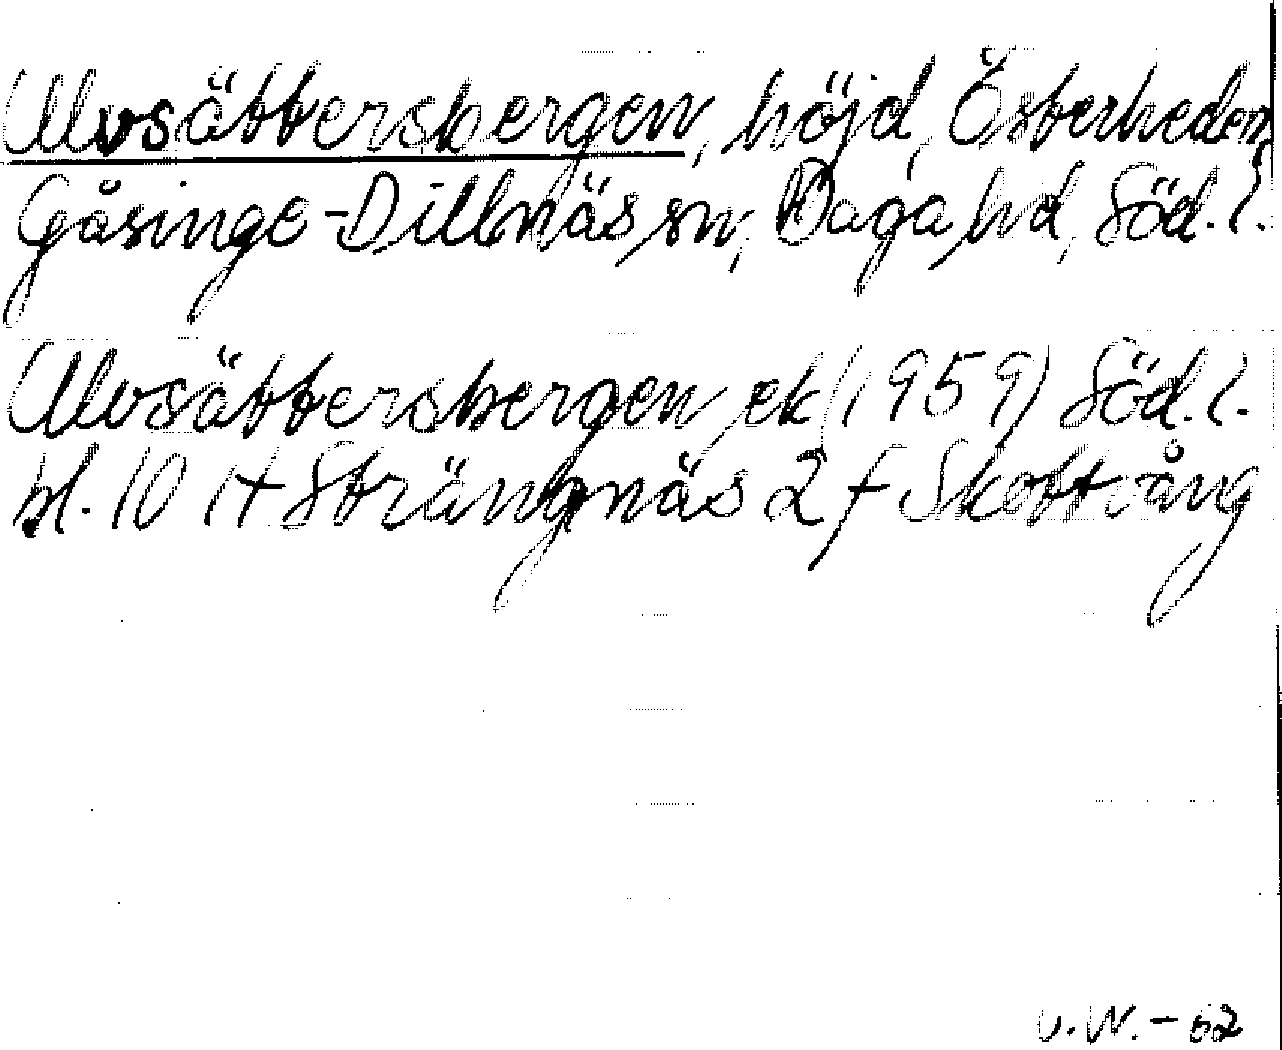 Ulvsättersbergen, höjd, Österheden,
Gåsinge-Dillnäs sn, Daga hd, Söd. l.
Ulvsättersbergen ek (1959) Söd. l.
bl. 10 H Strängnäs 2 f Skottvång
v. W. - 62